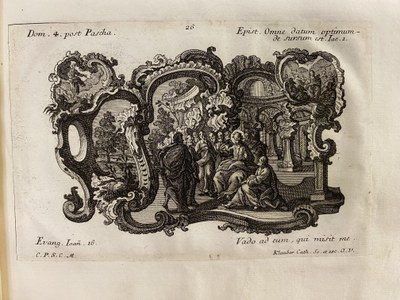 26
Dom. 4. post Pascha.
Epist. Omne datum optimum
de sursum est. Iac. 1.
Evang. Ioañ. 16.
Vado ad eum, qui misit me.
C. P. S. C. M.
Klauber Cath. Sc. et exc. A. V.